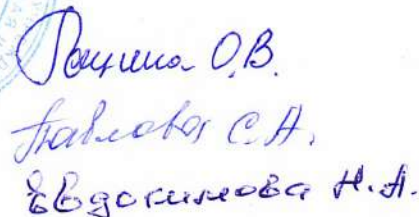 Пацина О.В.
Павлова С.А.
Евдокимова Н.А.